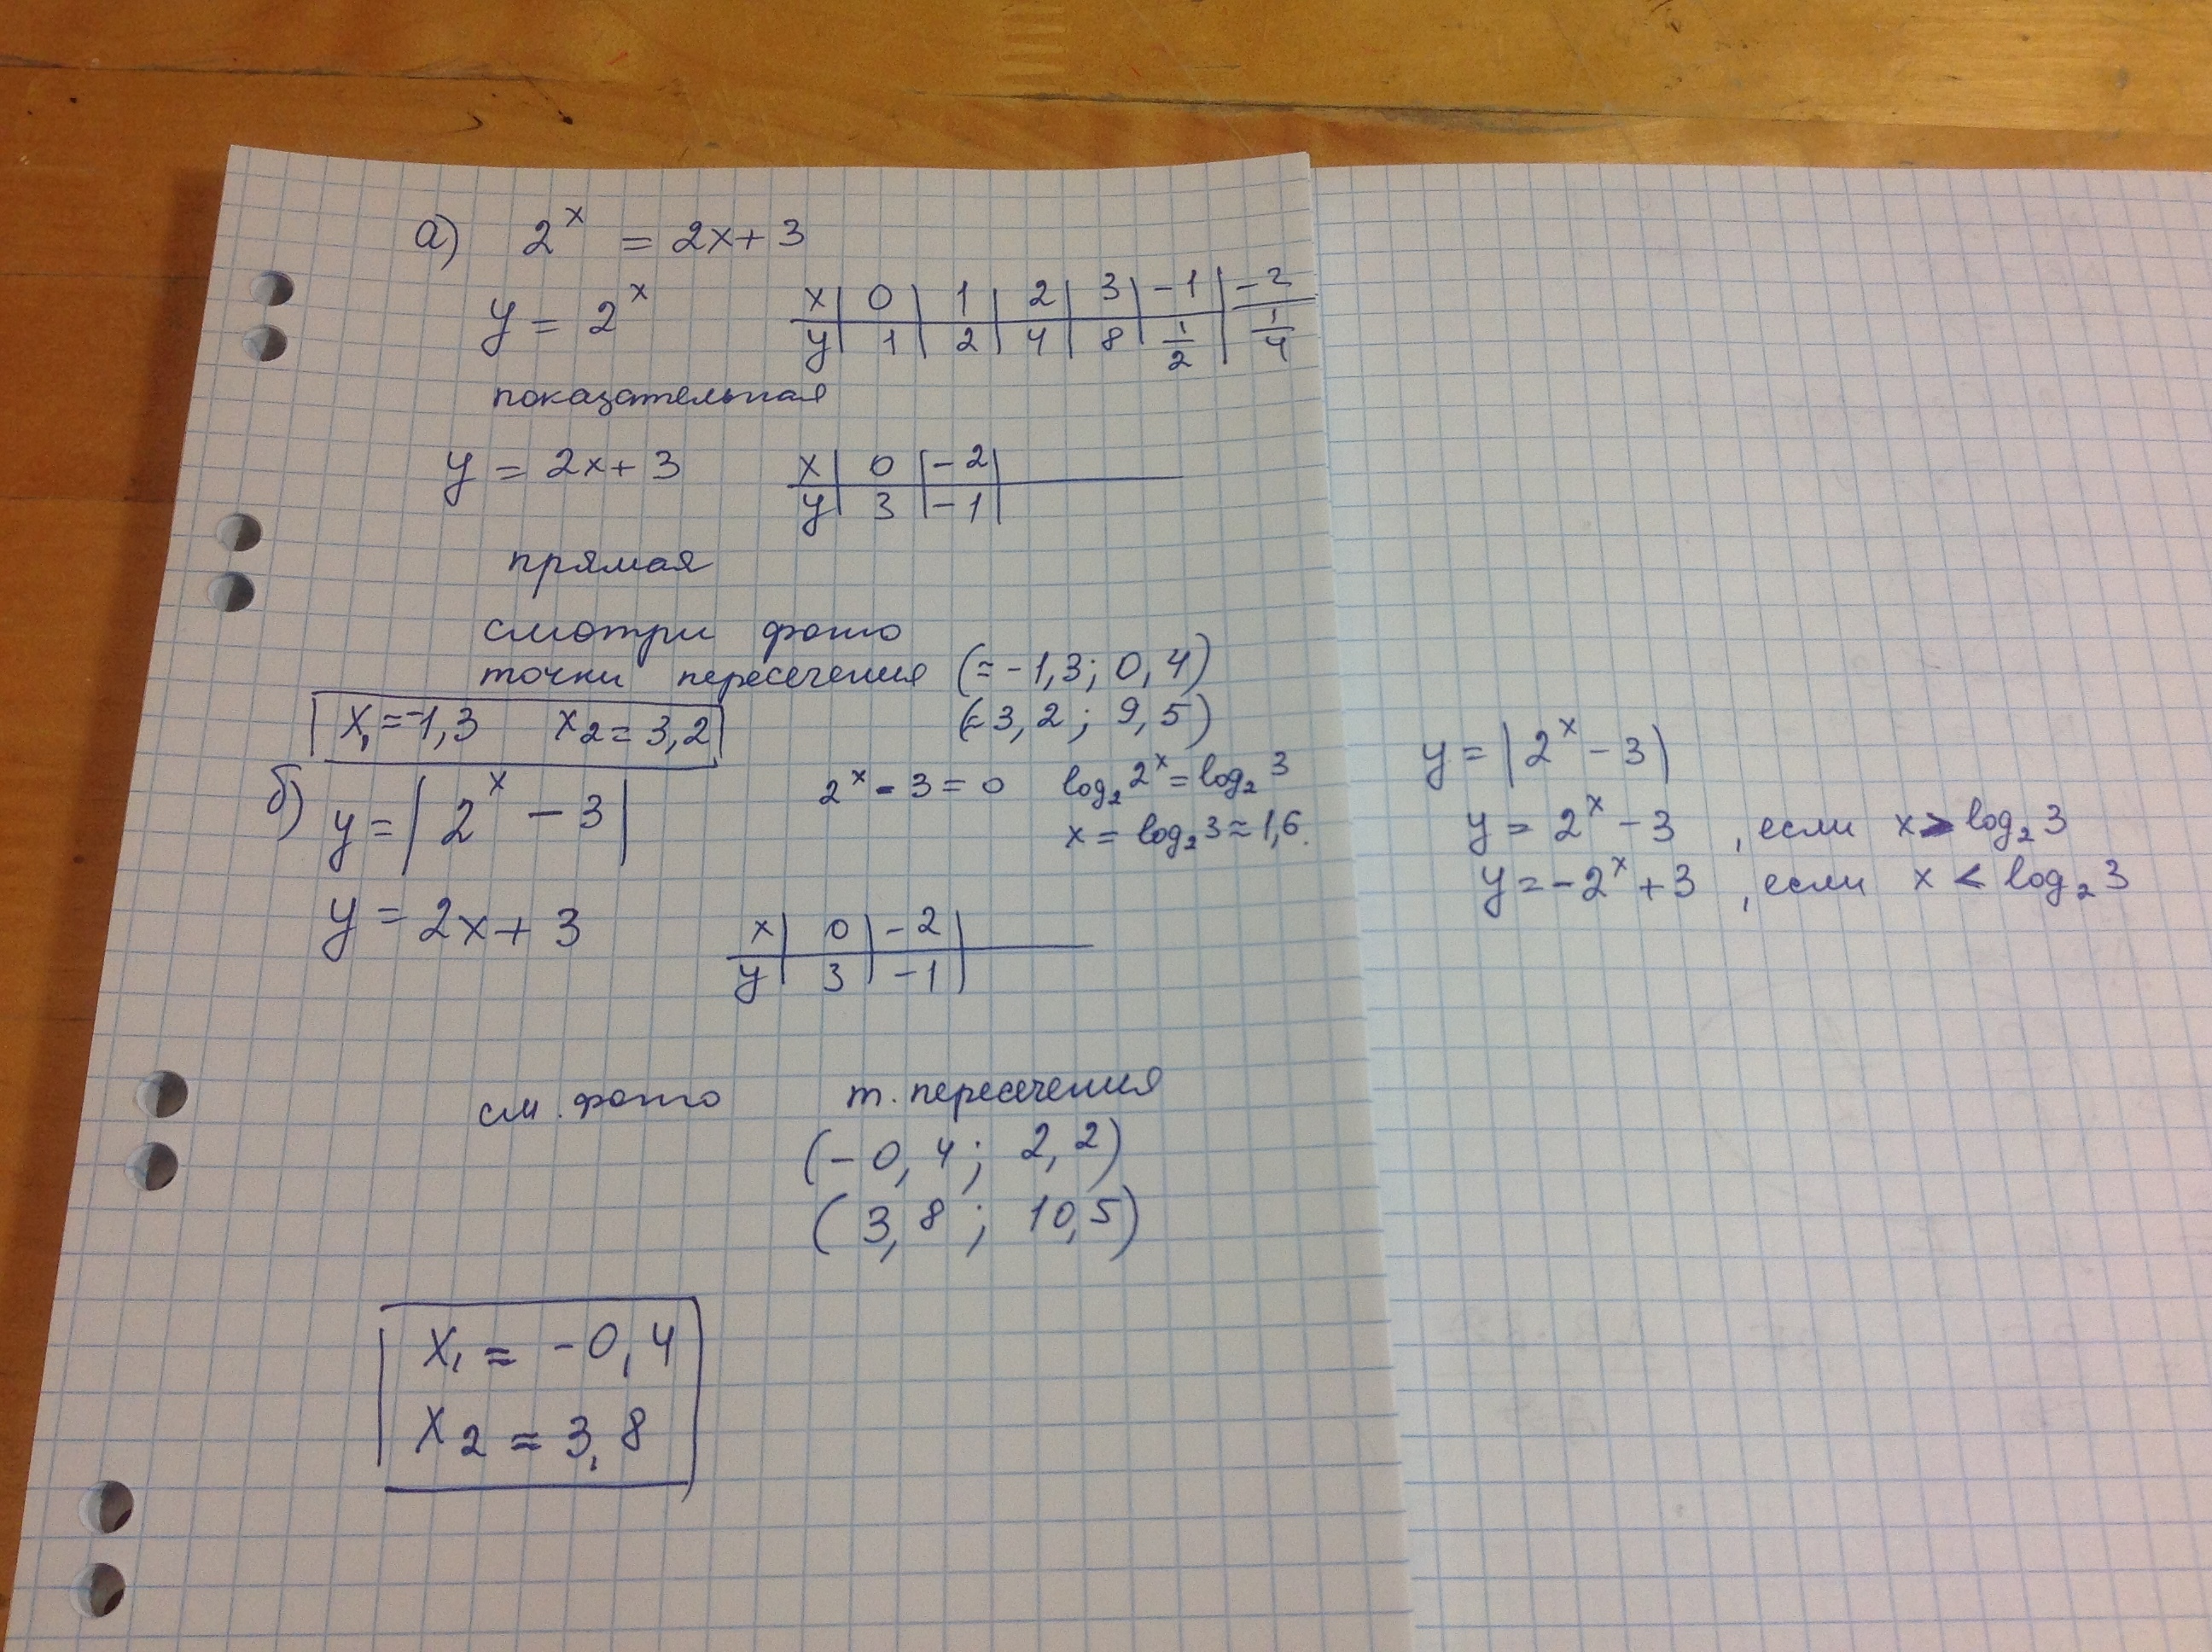 а) 2^x = 2x+3
y = 2^x
x | 0 | 1 | 2 | 3 | -1 | -2
y | 1 | 2 | 4 | 8 | 1/2 | 1/4
показательная
y = 2x+3
x | 0 | -2 |
y | 3 | -1 |
прямая
смотри фото
точки пересечения (≈-1,3; 0,4)
(≈3,2; 9,5)
x₁=-1,3 x₂=3,2
б) y=|2^x - 3|
2^x - 3 = 0 log₂2^x = log₂3
x = log₂3 ≈ 1,6.
y = 2x+3
x | 0 | -2 |
y | 3 | -1 |
см. фото т. пересечения
(-0,4; 2,2)
(3,8; 10,5)
x₁ ≈ -0,4
x₂ ≈ 3,8
y = |2^x - 3|
y = 2^x - 3 , если x > log₂3
y = -2^x + 3 , если x < log₂3